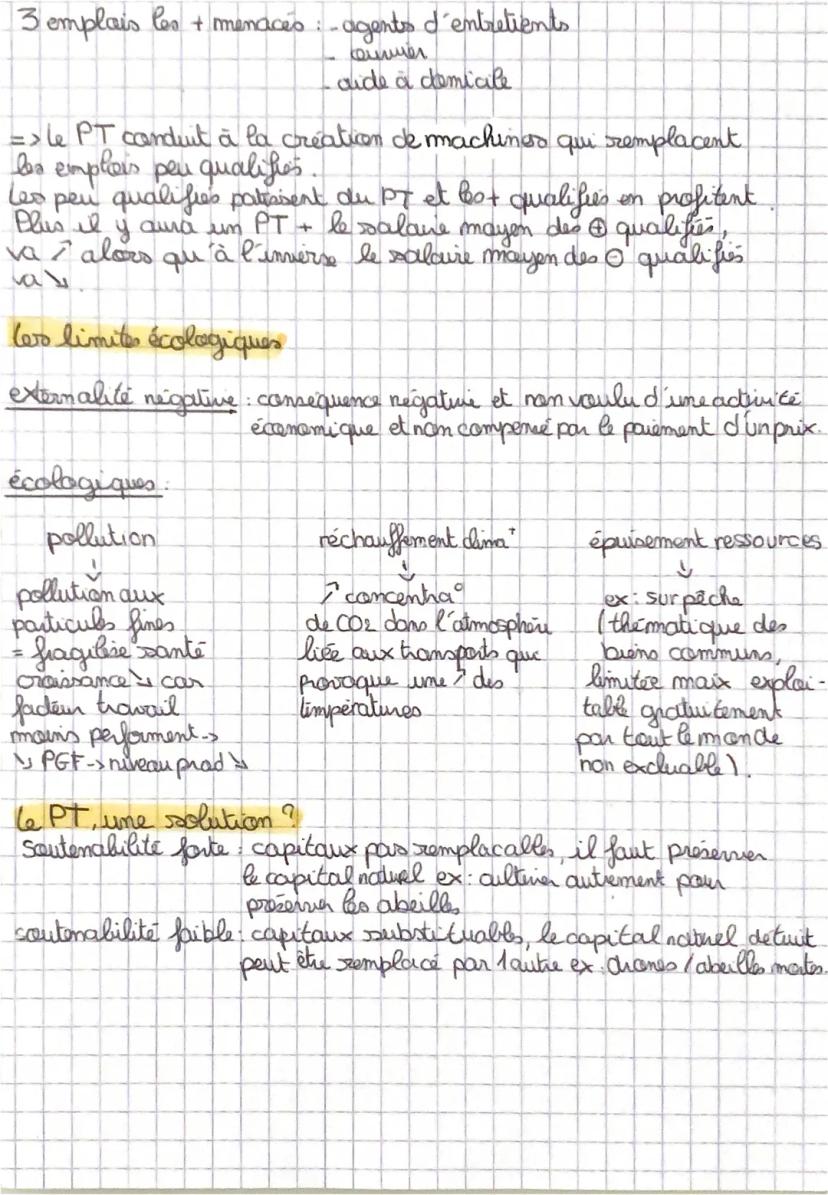 3 emplois les + menacés : - agents d'entretients
- ouvrier
- aide à domicile
=> Le PT conduit à la création de machines qui remplacent
les emplois peu qualifiés.
Les peu qualifiés patissent du PT et les + qualifiés en profitent.
Plus il y aura un PT + le salaire moyen des ⊕ qualifiés,
va ↗ alors qu'à l'inverse le salaire moyen des ⊖ qualifiés
va ↘.
Les limites écologiques
externalité négative : conséquence négative et non voulu d'une activité
économique et non compensé par le paiement d'un prix.
écologiques :
pollution
↓
pollution aux
particules fines
= fragilise santé
croissance ↘ car
facteur travail
moins performent ->
↘ PGF -> niveau prod ↘
réchauffement clima⁺
↓
↗ concentra°
de CO2 dans l'atmosphère
liée aux transports que
provoque une ↗ des
températures
épuisement ressources
↓
ex : surpêche
(thématique des
biens communs,
limitée maix exploi-
table gratuitement
par tout le monde
non excluable).
Le PT, une solution ?
Soutenabilité forte : capitaux pas remplacables, il faut préserver
le capital naturel ex : cultiver autrement pour
préserver les abeilles
soutenabilité faible : capitaux substituables, le capital naturel detruit
peut être remplacé par 1 autre ex : drones / abeilles mortes.